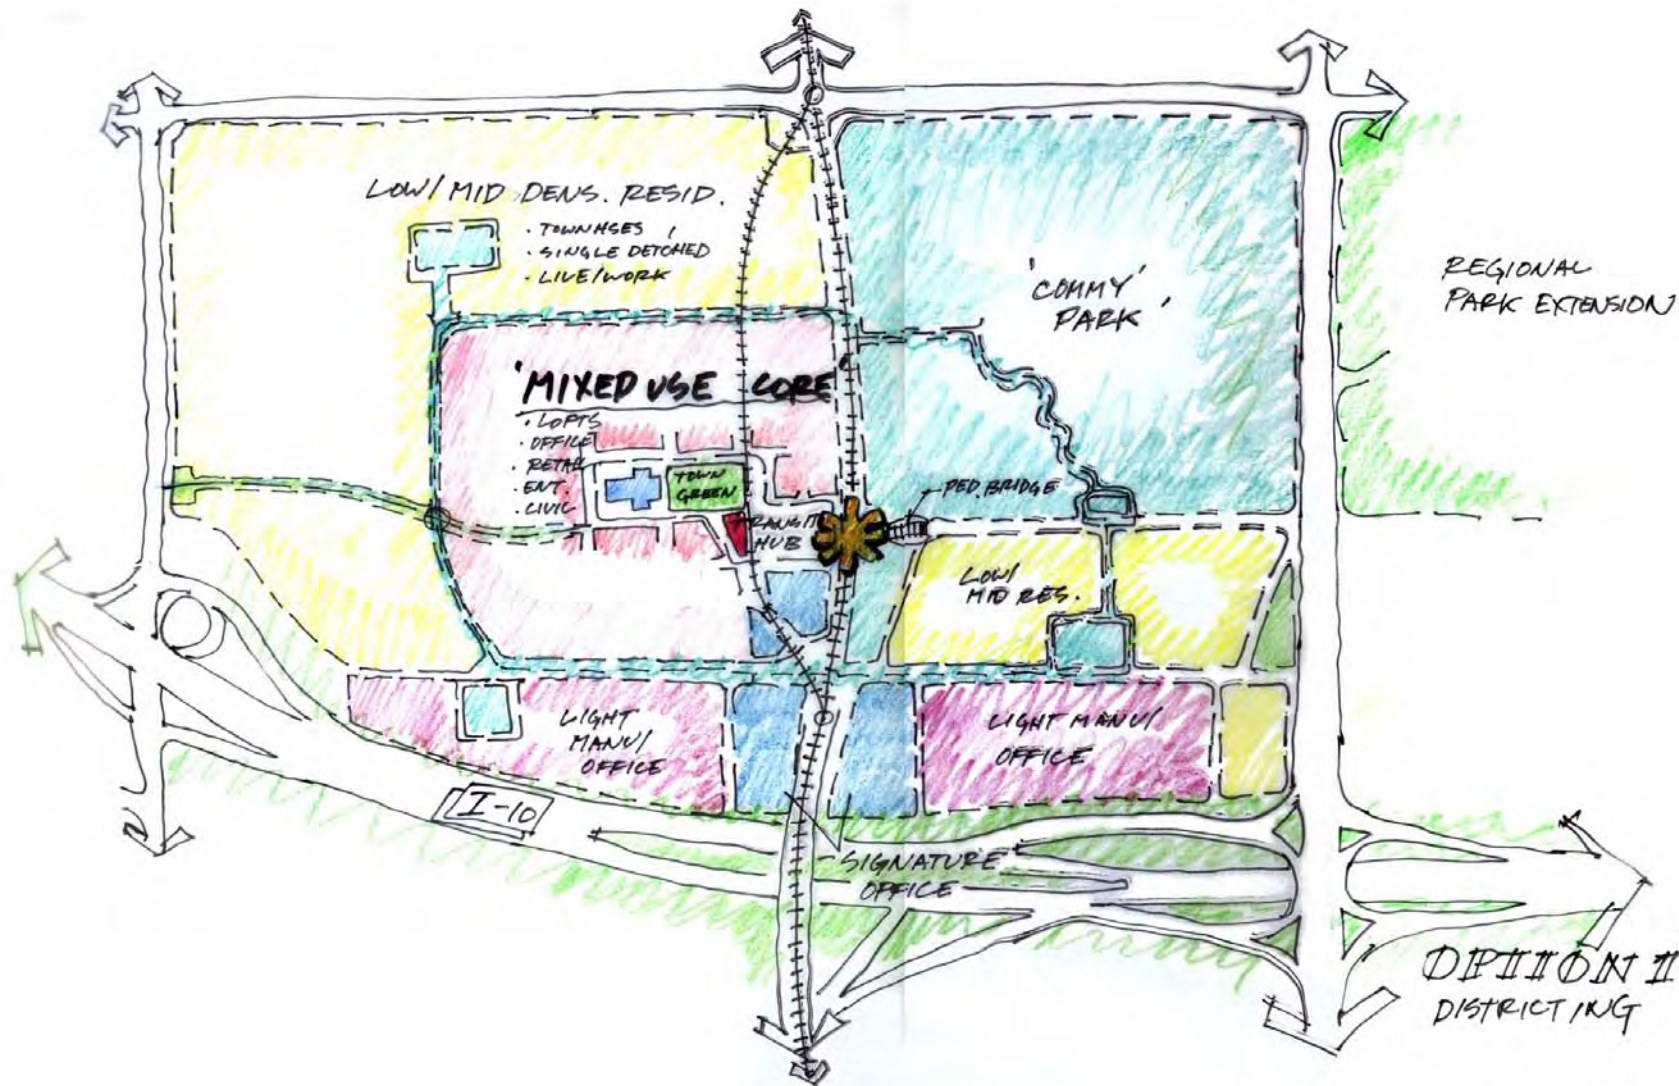 LOW/MID DENS. RESID.
· TOWNHSES
· SINGLE DETCHED
· LIVE/WORK
'COMMY'
PARK'
REGIONAL
PARK EXTENSION
'MIXED USE CORE'
· LOFTS
· OFFICE
· RETAIL
· ENT.
· CIVIC
TOWN
GREEN
TRANSIT
HUB
PED. BRIDGE
LOW/
MID RES.
LIGHT
MANU/
OFFICE
LIGHT MANU/
OFFICE
I-10
SIGNATURE
OFFICE
OPTION 1
DISTRICTING